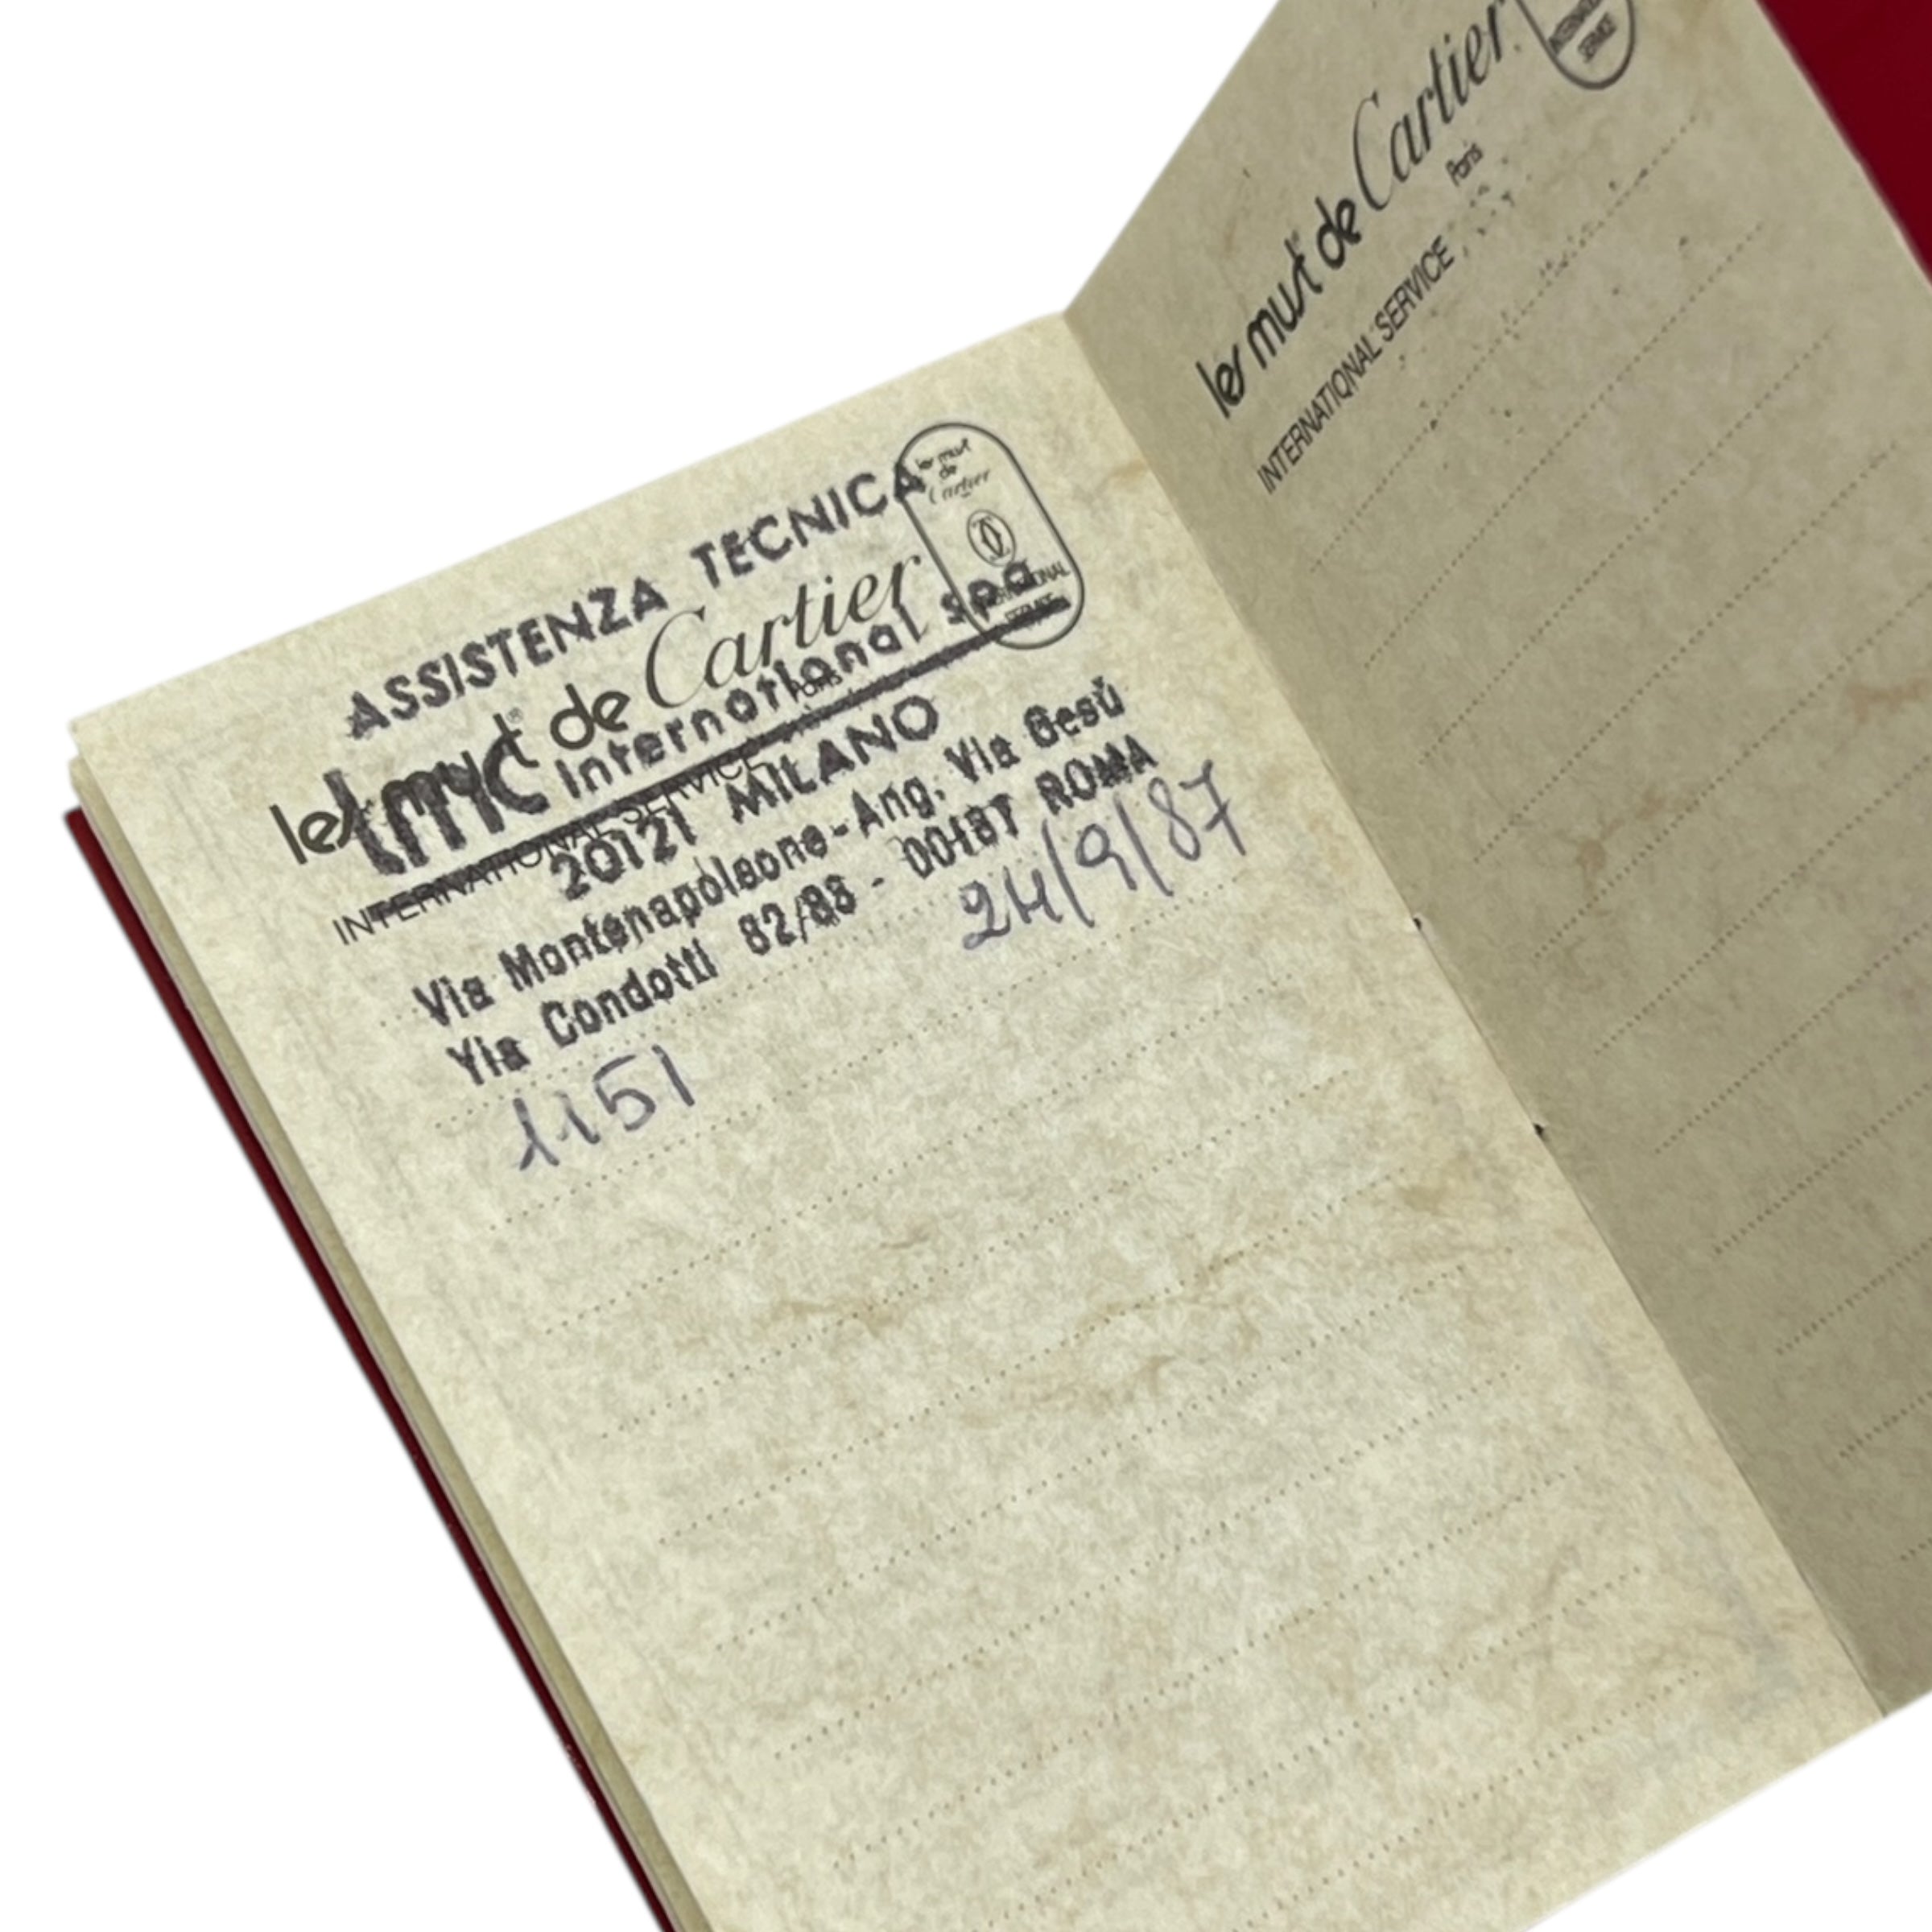 ASSISTENZA TECNICA
les must de Cartier
Paris
INTERNATIONAL SERVICE
les must
de
Cartier
INTERNATIONAL
SERVICE
LMC International spa
20121 MILANO
Via Montenapoleone-Ang. Via Gesù
Via Condotti 82/83 - 00187 ROMA
24/9/87
1151
les must de Cartier
Paris
INTERNATIONAL SERVICE
INTERNATIONAL
SERVICE